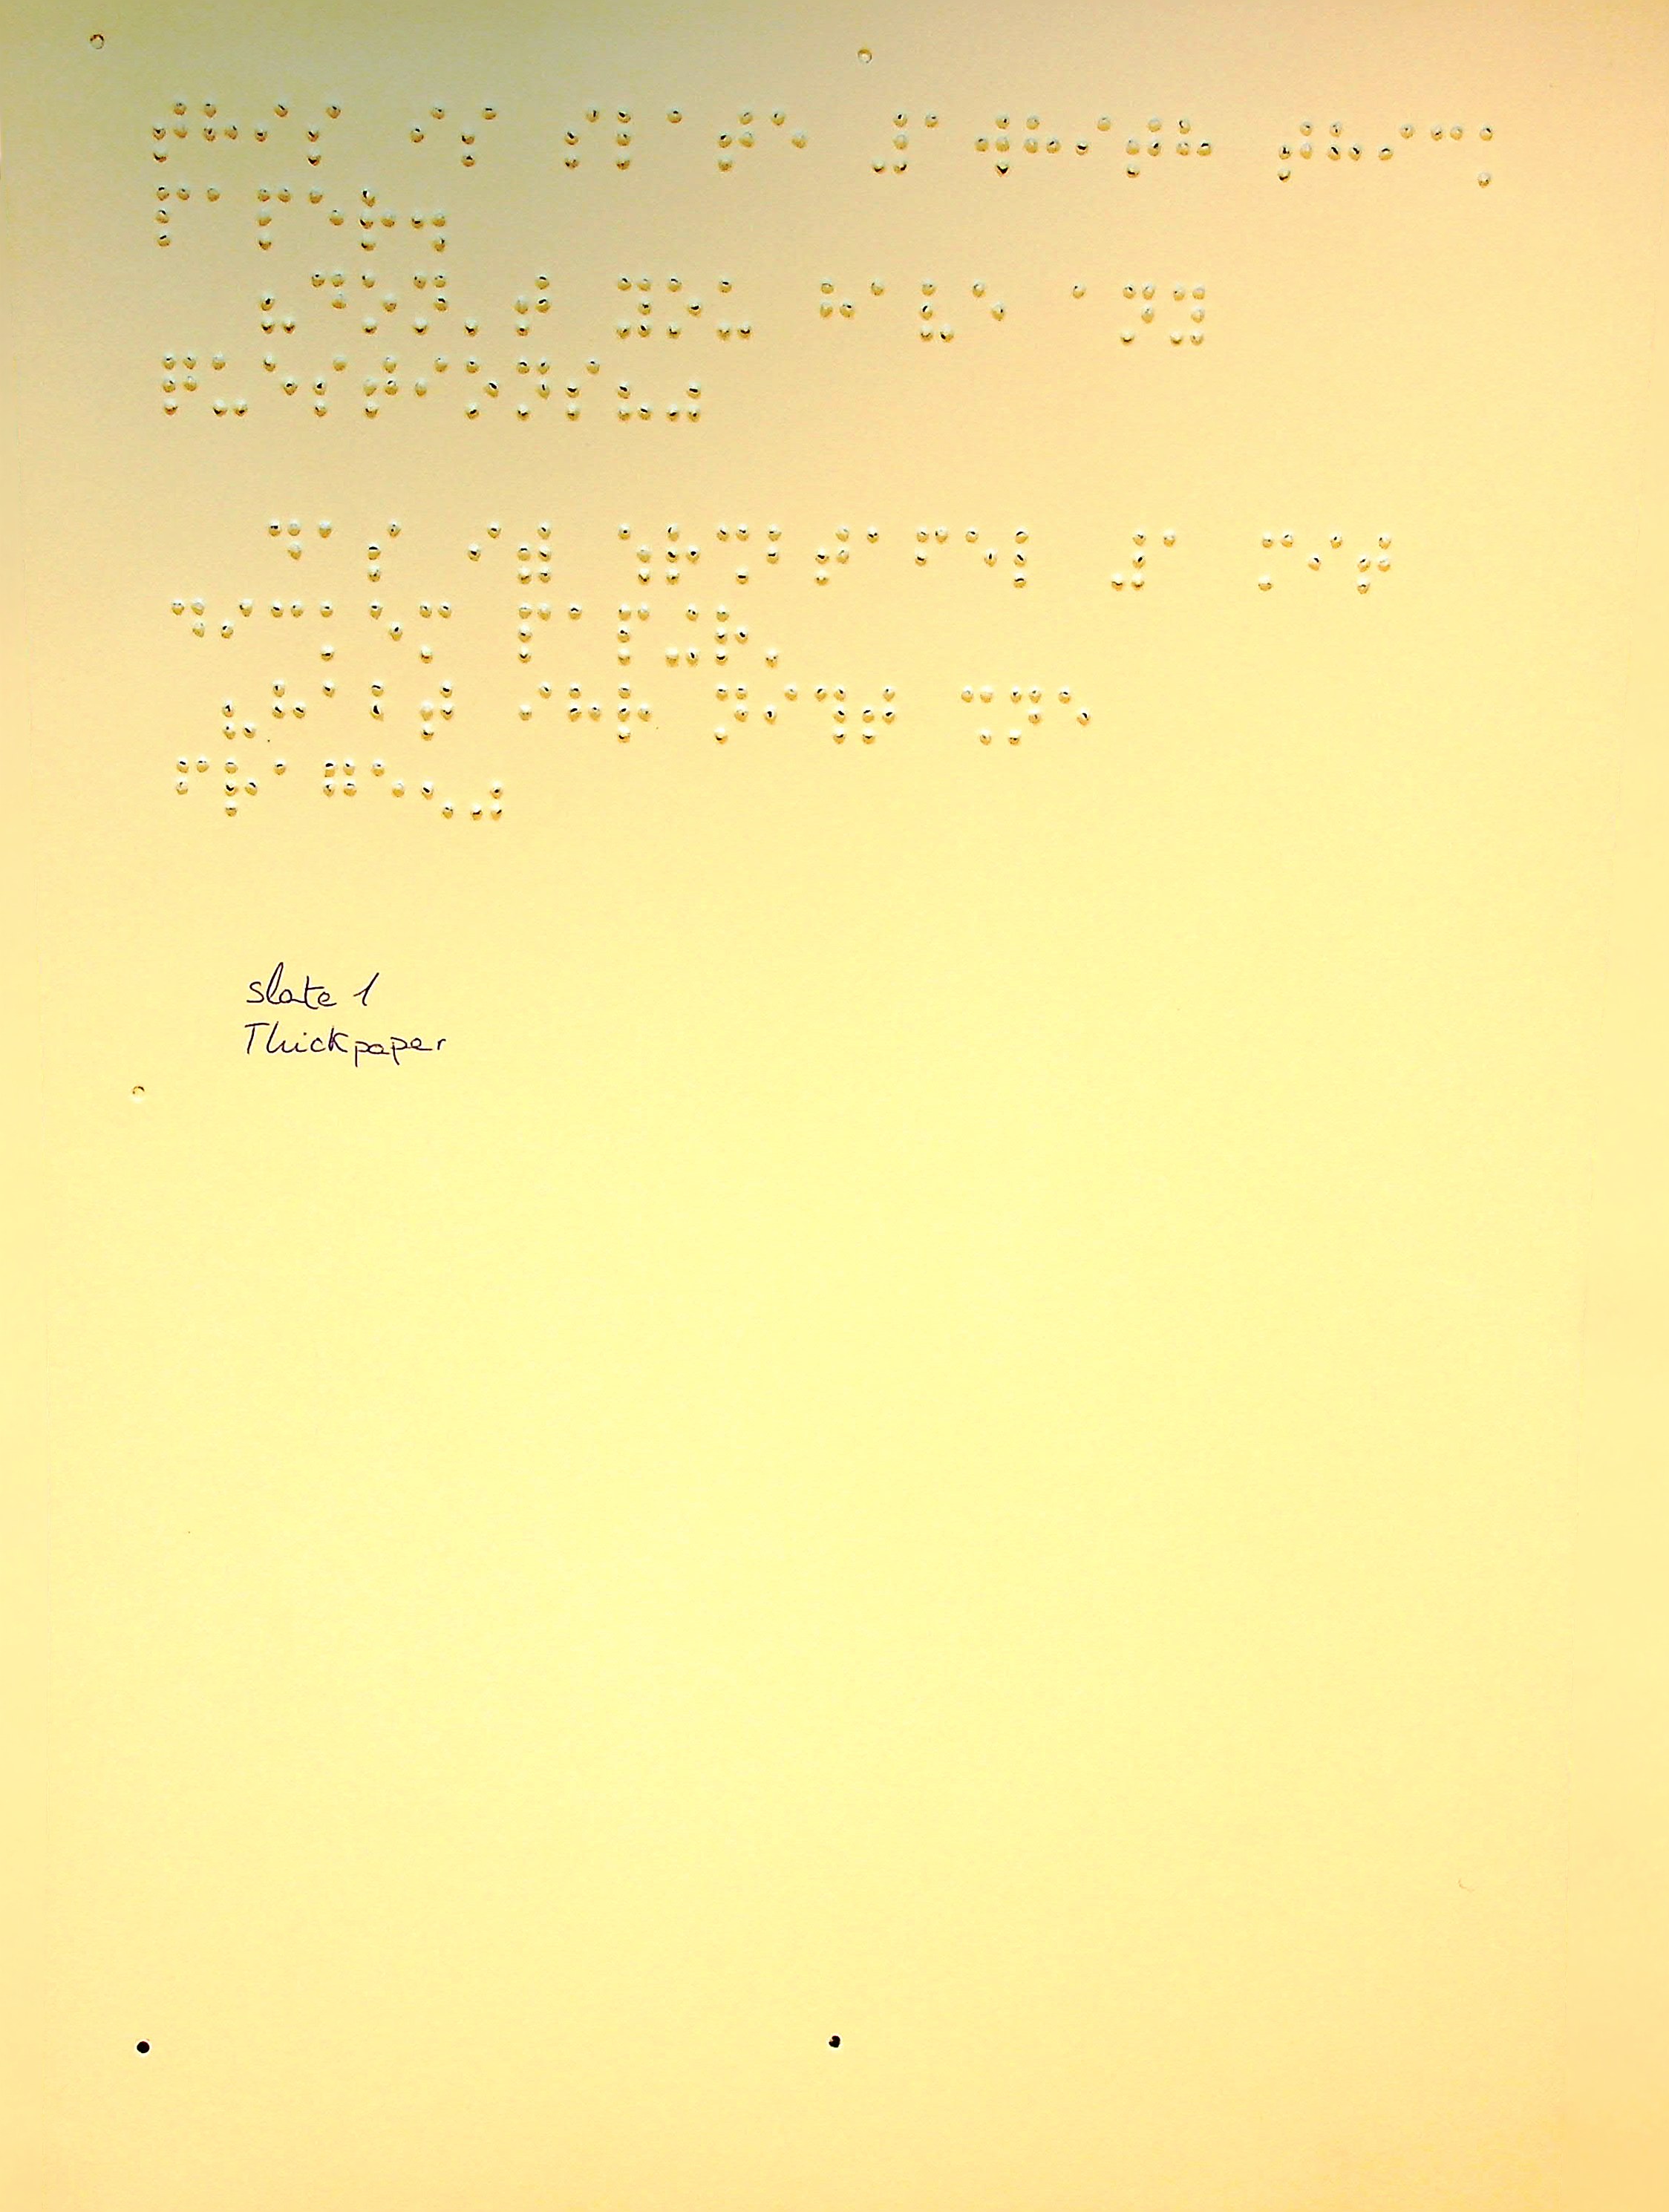 ⠞⠓⠊⠎ ⠊⠎ ⠎⠇⠁⠞⠑ ⠼⠁⠺⠓⠊⠞⠓ ⠞⠓⠊⠉⠅
⠏⠁⠏⠑⠗⠲
⠦⠙⠕⠝⠄⠞ ⠽⠕⠥ ⠓⠁⠧⠑ ⠁⠝⠽
⠟⠥⠑⠎⠞⠊⠕⠝⠎⠦⠴
⠙⠁⠎ ⠊⠾ ⠱⠗⠩⠃⠞⠁⠋⠑⠇ ⠼⠁ ⠍⠊⠞
⠙⠊⠉⠅⠑⠍ ⠏⠁⠏⠬⠗⠄
⠦⠓⠁⠃⠞ ⠊⠓⠗ ⠝⠊⠹⠞ ⠩⠝⠑
⠋⠗⠁⠛⠑⠢⠴
slate 1
Thickpaper